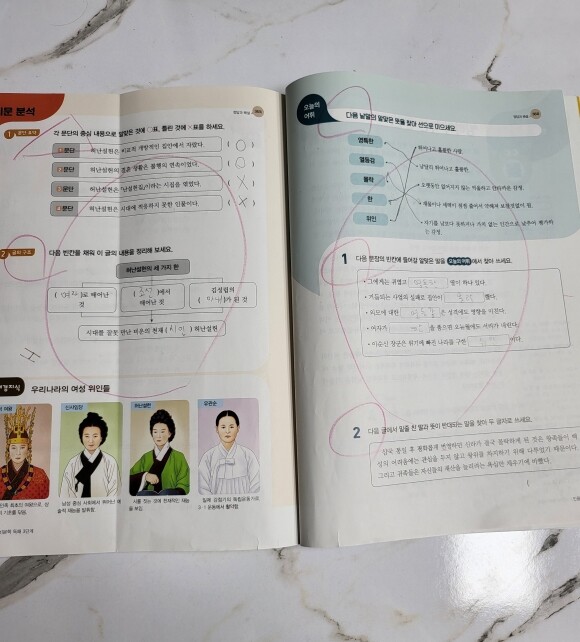 지문 분석
1 문단 요약
각 문단의 중심 내용으로 알맞은 것에 ○표, 틀린 것에 ×표를 하세요.
1문단 허난설헌은 비교적 개방적인 집안에서 자랐다. ( ○ )
2문단 허난설헌의 결혼 생활은 불행의 연속이었다. ( ○ )
3문단 허난설헌은 '난설헌집'이라는 시집을 엮었다. ( × )
4문단 허난설헌은 시대에 적응하지 못한 인물이다. ( × )
2 글의 구조
다음 빈칸을 채워 이 글의 내용을 정리해 보세요.
허난설헌의 세 가지 한
( 여자 )로 태어난 것
( 조선 )에서 태어난 것
김성립의 ( 아내 )가 된 것
시대를 잘못 만난 비운의 천재 ( 시인 ) 허난설헌
배경지식 우리나라의 여성 위인들
신사임당
허난설헌
유관순
남성 중심 사회에서 뛰어난 예술적 재능을 발휘함.
시를 짓는 것에 천재적인 재능을 보임.
일제 강점기의 독립운동가로 3·1 운동에서 활약함.
오늘의 어휘
다음 낱말의 알맞은 뜻을 찾아 선으로 이으세요.
영특한
열등감
몰락
한
위인
뛰어나고 훌륭한 사람.
남달리 뛰어나고 훌륭한.
오랫동안 잊히지 않는 억울하고 안타까운 감정.
재물이나 세력이 쇠하여 보잘것없이 됨.
자기를 남보다 못하거나 가치 없는 인간으로 낮추어 평가하는 감정.
1 다음 문장의 빈칸에 들어갈 알맞은 말을 오늘의 어휘에서 찾아 쓰세요.
그에게는 귀엽고 영특한 딸이 하나 있다.
거듭되는 사업의 실패로 집안이 몰락 했다.
외모에 대한 열등감 은 성격에도 영향을 미친다.
여자가 한 을 품으면 오뉴월에도 서리가 내린다.
이순신 장군은 위기에 빠진 나라를 구한 위인 이다.
2 다음 글에서 밑줄 친 말과 뜻이 반대되는 말을 찾아 두 글자로 쓰세요.